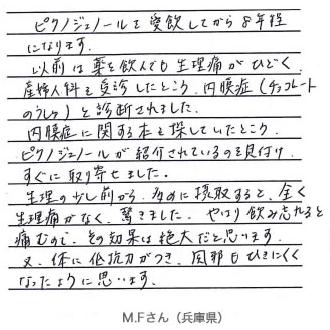 ピクノジェノールを愛飲してから8年程
になります。
以前は薬を飲んでも生理痛がひどく、
産婦人科を受診したところ、内膜症（チョコレート
のうしゅ）と診断されました。
内膜症に関する本を探していたところ、
ピクノジェノールが紹介されているのを見付け
すぐに取り寄せました。
生理の少し前から、多めに摂取すると、全く
生理痛がなく、驚きました。やはり飲み忘れると
痛むので、その効果は絶大だと思います。
又、体に抵抗力がつき、風邪もひきにくく
なったように思います。
M.Fさん（兵庫県）